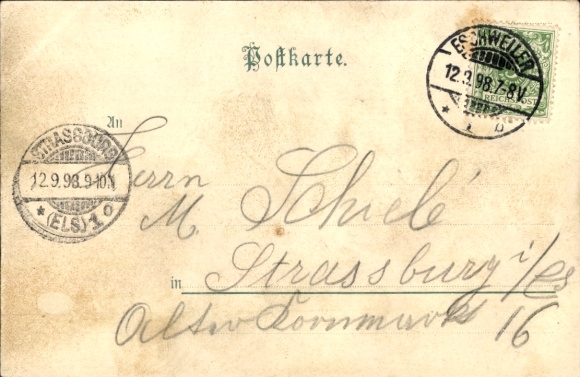 Postkarte.
ESCHWEILER
12.9.98.7-8V.
REICHSPOST
An
STRASSBURG
12.9.98.9-10V.
* (ELS) 1 o
Herrn
M. Schielé
in Strassburg i/Els
Alter Kornmarkt 16